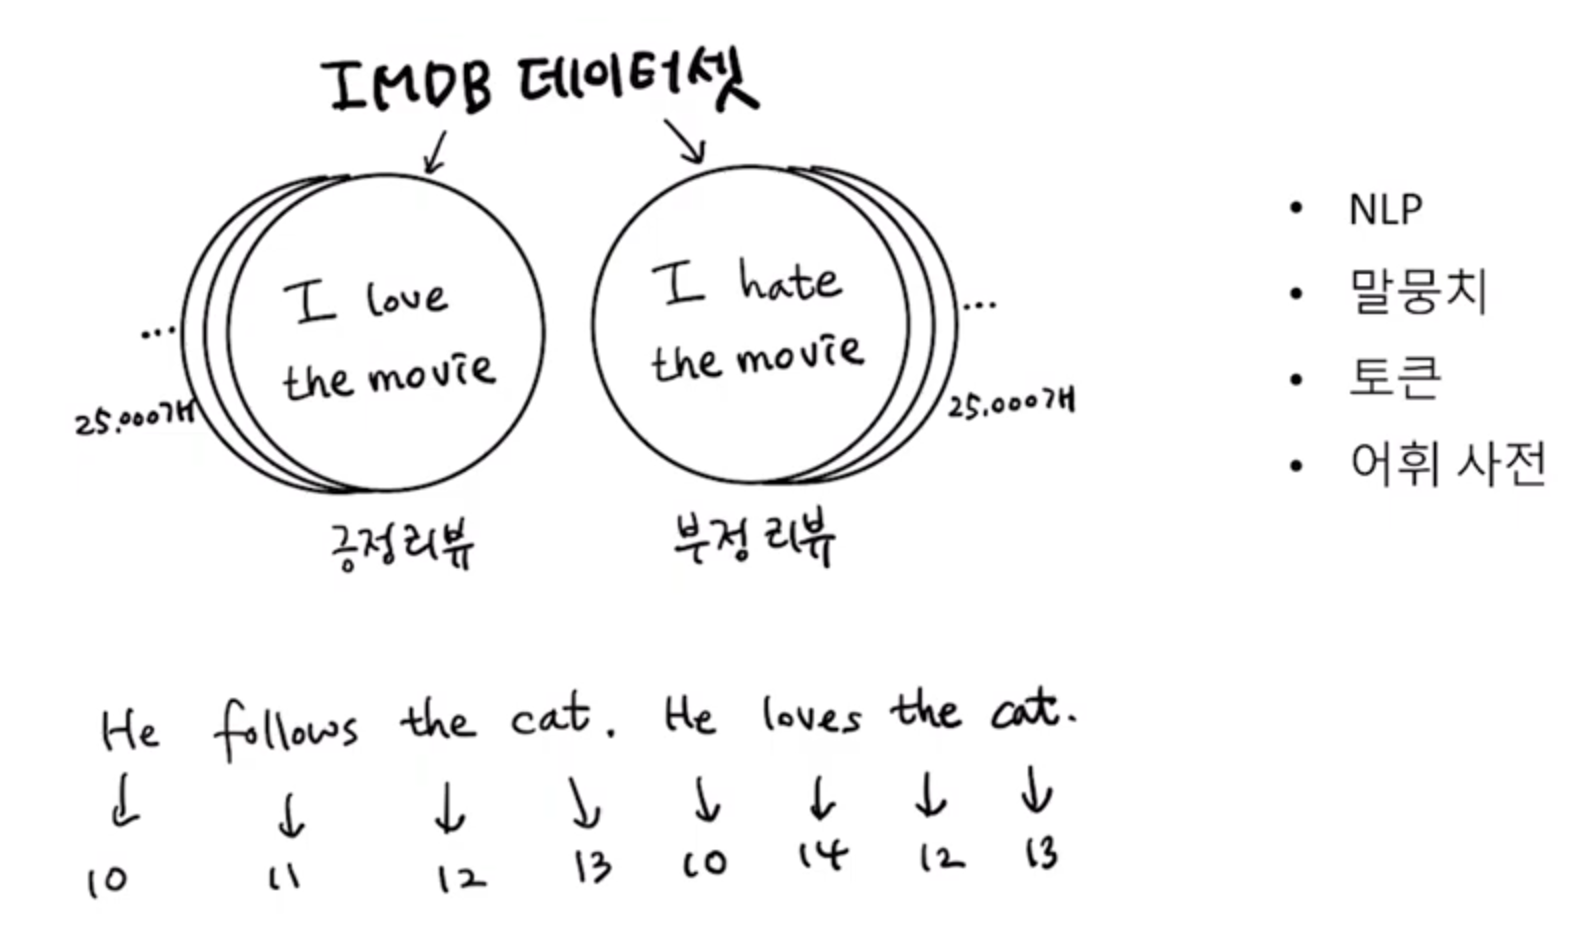 IMDB 데이터셋
I love
the movie
...
25.000개
긍정리뷰
I hate
the movie
...
25.000개
부정 리뷰
• NLP
• 말뭉치
• 토큰
• 어휘 사전
He follows the cat. He loves the cat.
10 11 12 13 10 14 12 13